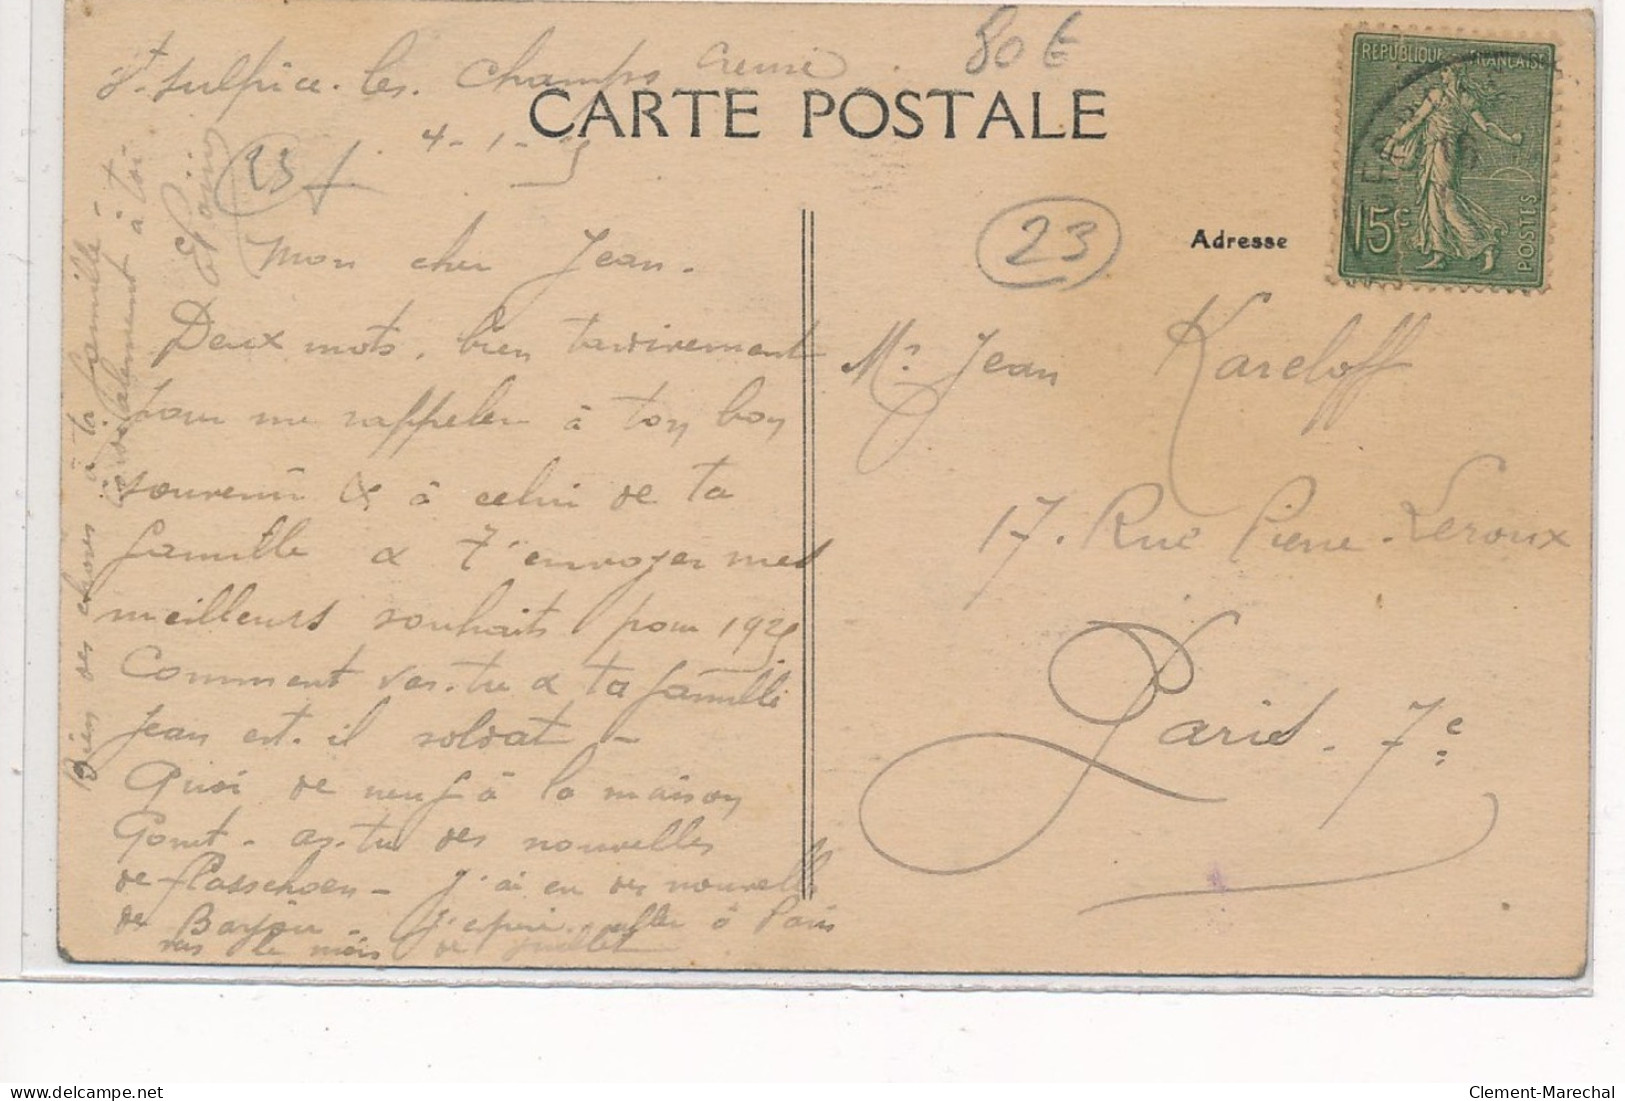 St Sulpice. les. Champs Creuse
80 €
CARTE POSTALE
4-1-25
23
23
REPUBLIQUE FRANÇAISE
15c
POSTES
Adresse
Mon cher Jean.
Deux mots, bien tardivement
pour me rappeler à ton bon
souvenir & à celui de ta
famille & t'envoyer mes
meilleurs souhaits pour 1925
Comment vas-tu & ta famille
Jean est-il soldat -
Quoi de neuf à la maison
Gonet - as-tu des nouvelles
de - J'ai eu des nouvelles
de aller à Paris
vers le mois de Juillet
Bien des choses à ta famille -
Cordialement à toi
Mr Jean Kareloff
17. Rue Pierre-Leroux
Paris. 7e
delcampe.net
Clement-Marechal